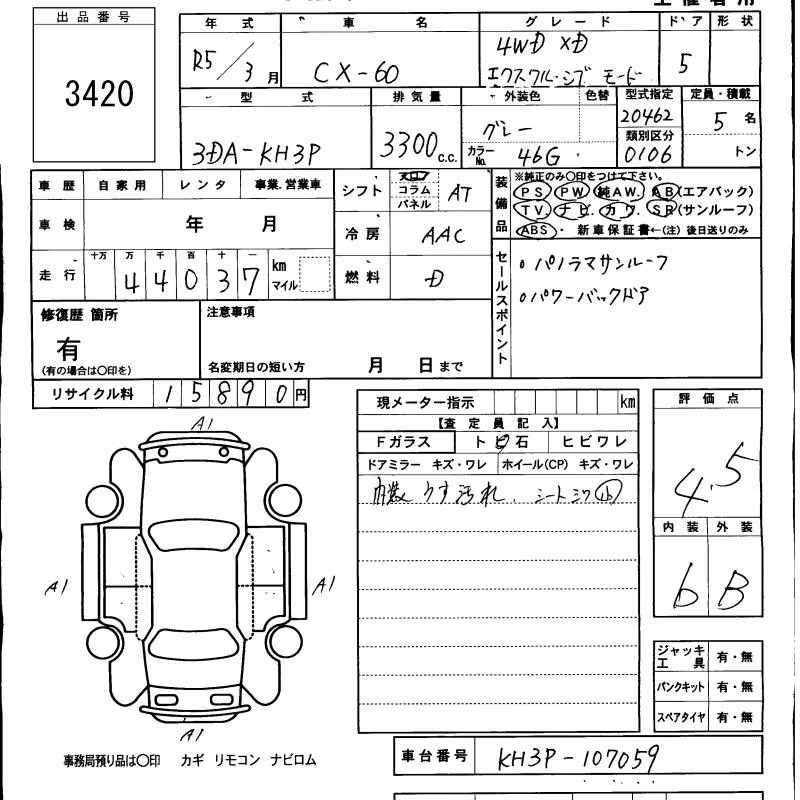 出品番号
3420
年式 車名 グレード ドア 形状
R5/3月 CX-60 4WD XD エクスクルーシブ モード 5
型式 排気量 外装色 色替 型式指定 定員・積載
3DA-KH3P 3300c.c. グレー 20462 5名
カラーNo. 46G 類別区分 0106 トン
車歴 自家用 レンタ 事業.営業車
車検 年 月
走行 十万 万 千 百 十 一
44037 km マイル
シフト フロア コラム パネル AT
冷房 AAC
燃料 D
装備品
※純正のみ〇印をつけて下さい。
PS PW 純AW. AB(エアバック)
TV. ナビ. カワ. SR(サンルーフ)
ABS・ 新車保証書←(注) 後日送りのみ
セールスポイント
。パノラマサンルーフ
。パワーバックドア
修復歴 箇所
有
(有の場合は〇印を)
注意事項
名変期日の短い方 月 日まで
リサイクル料 15890円
現メーター指示 km
【査定員記入】
Fガラス トビ石 ヒビワレ
ドアミラー キズ・ワレ ホイール(CP) キズ・ワレ
内装 うす汚れ、シートシワ小
評価点
4.5
内装 外装
b B
A1
A1
A1
A1
ジャッキ工具 有・無
パンクキット 有・無
スペアタイヤ 有・無
事務局預り品は〇印 カギ リモコン ナビロム
車台番号 KH3P-107059